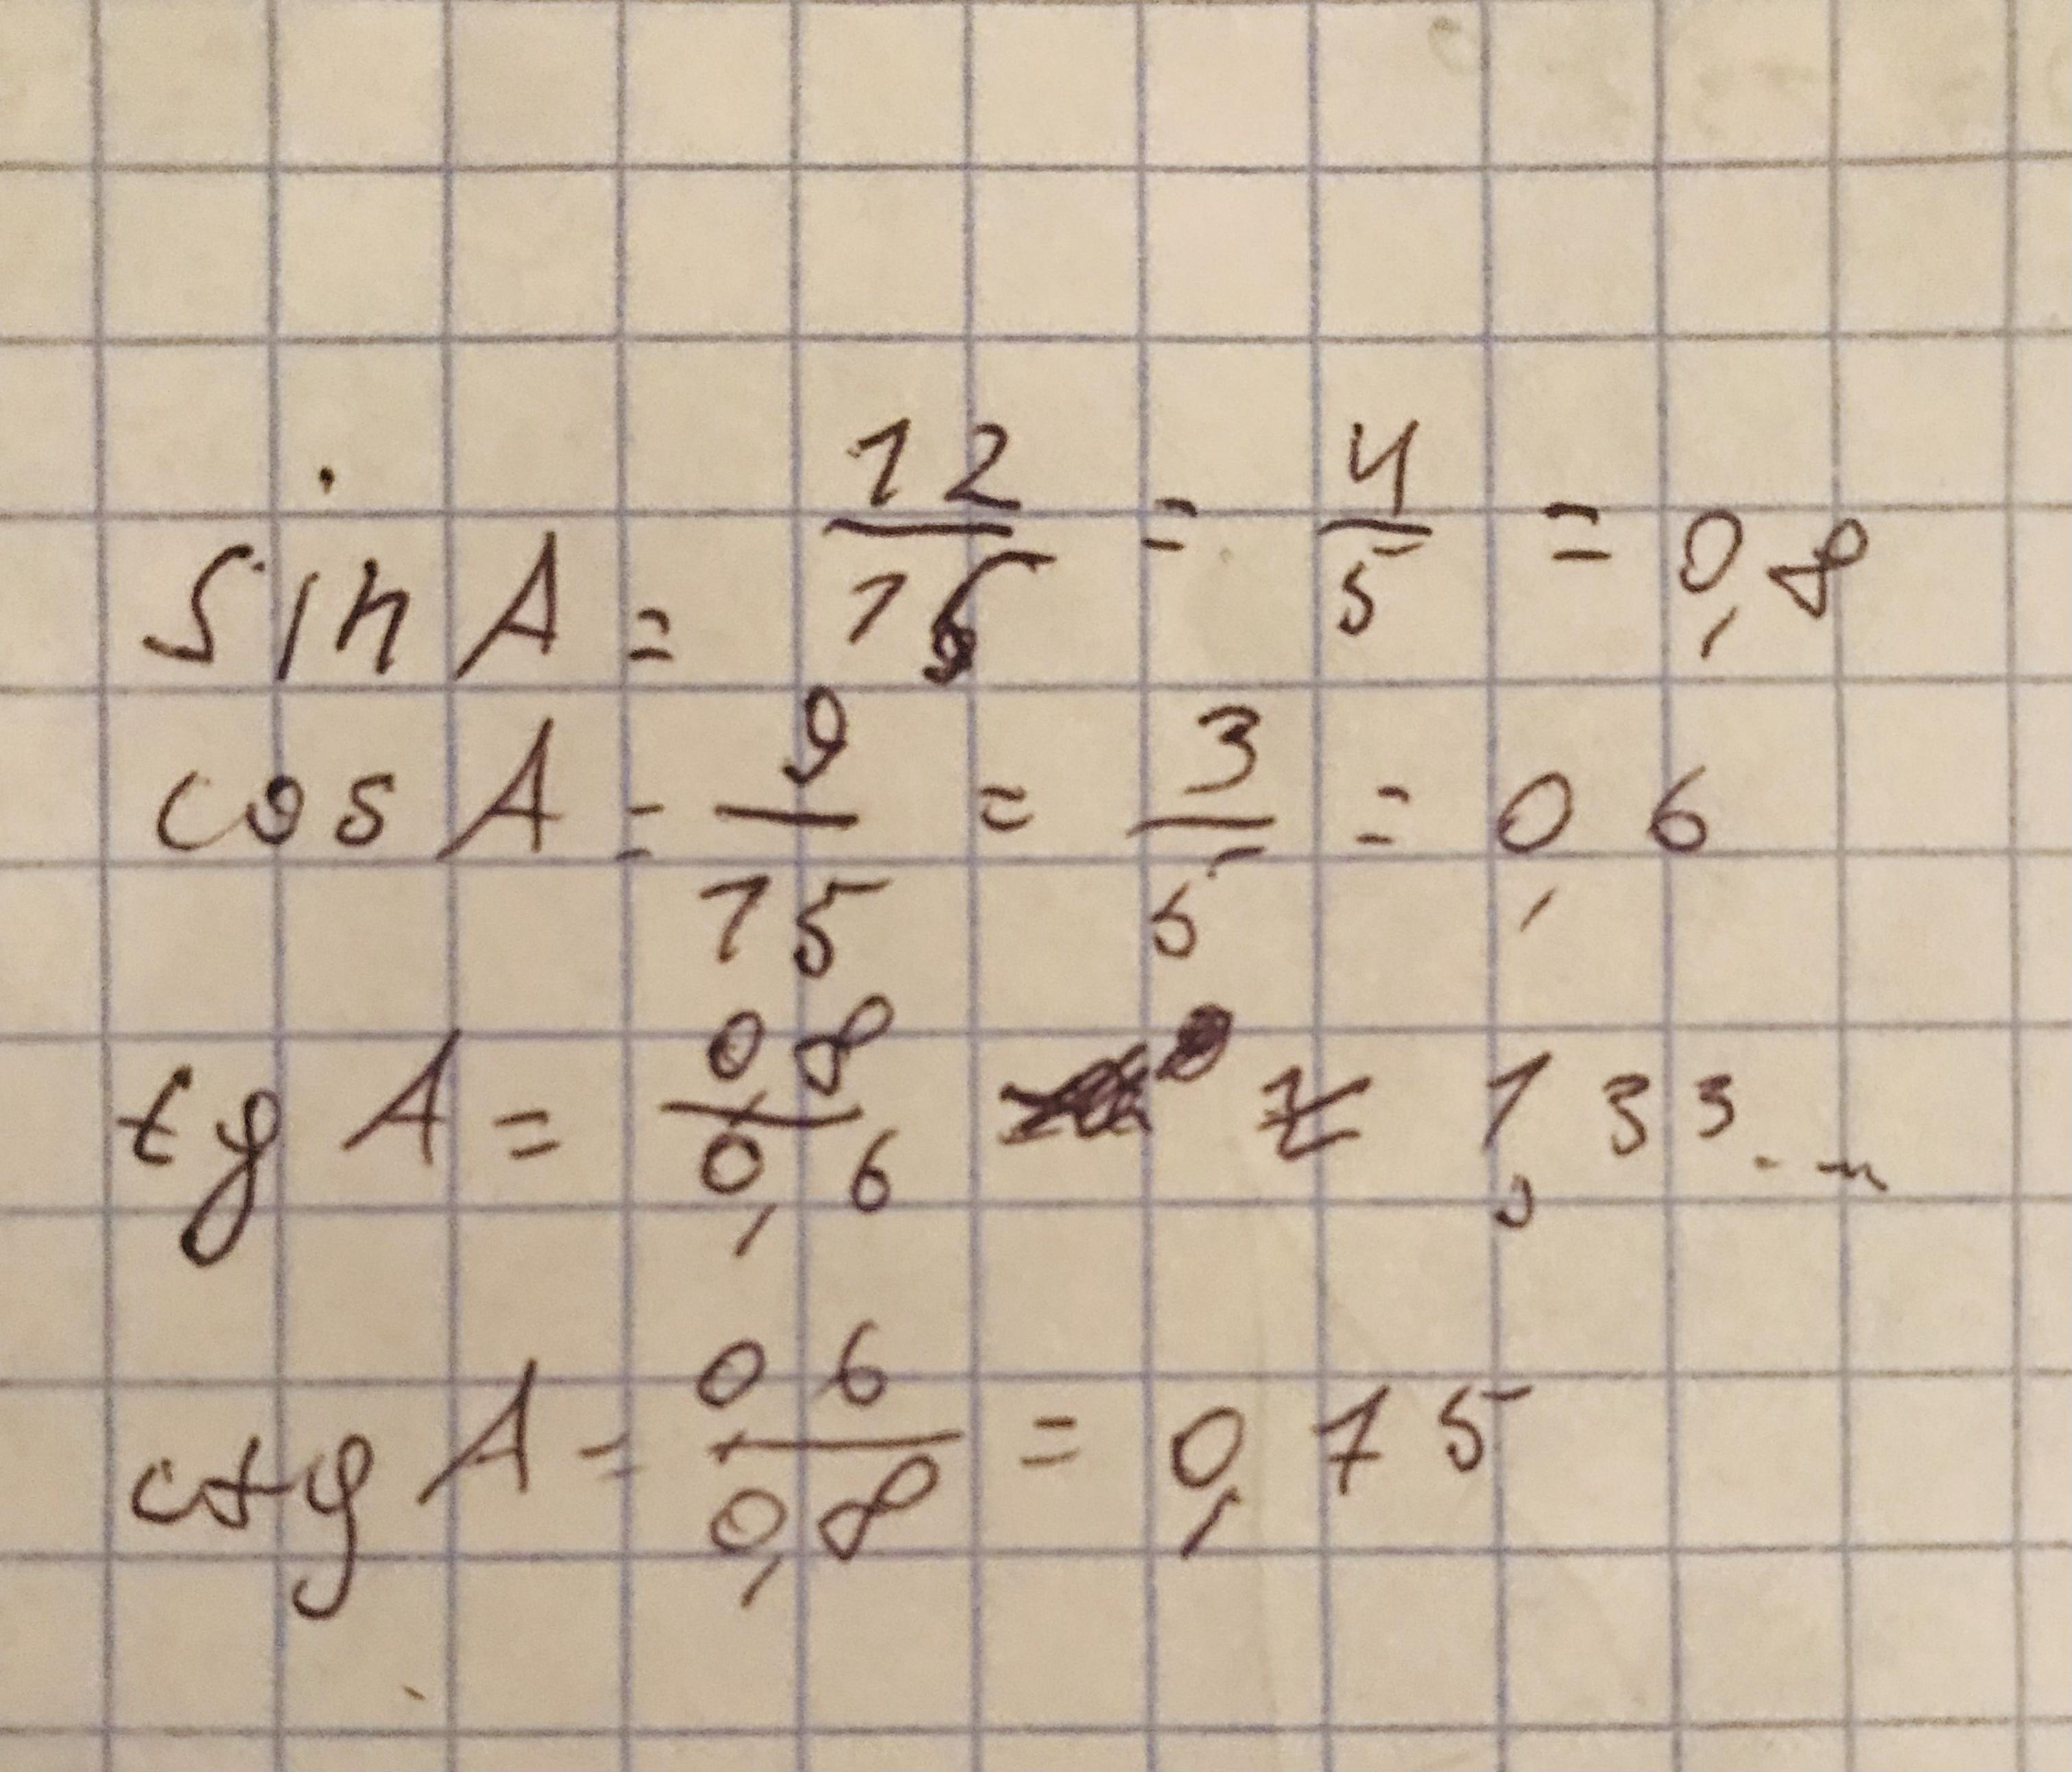 sin A = 12/15 = 4/5 = 0,8
cos A = 9/15 = 3/5 = 0,6
tg A = 0,8/0,6 ≈ 1,33...
ctg A = 0,6/0,8 = 0,75